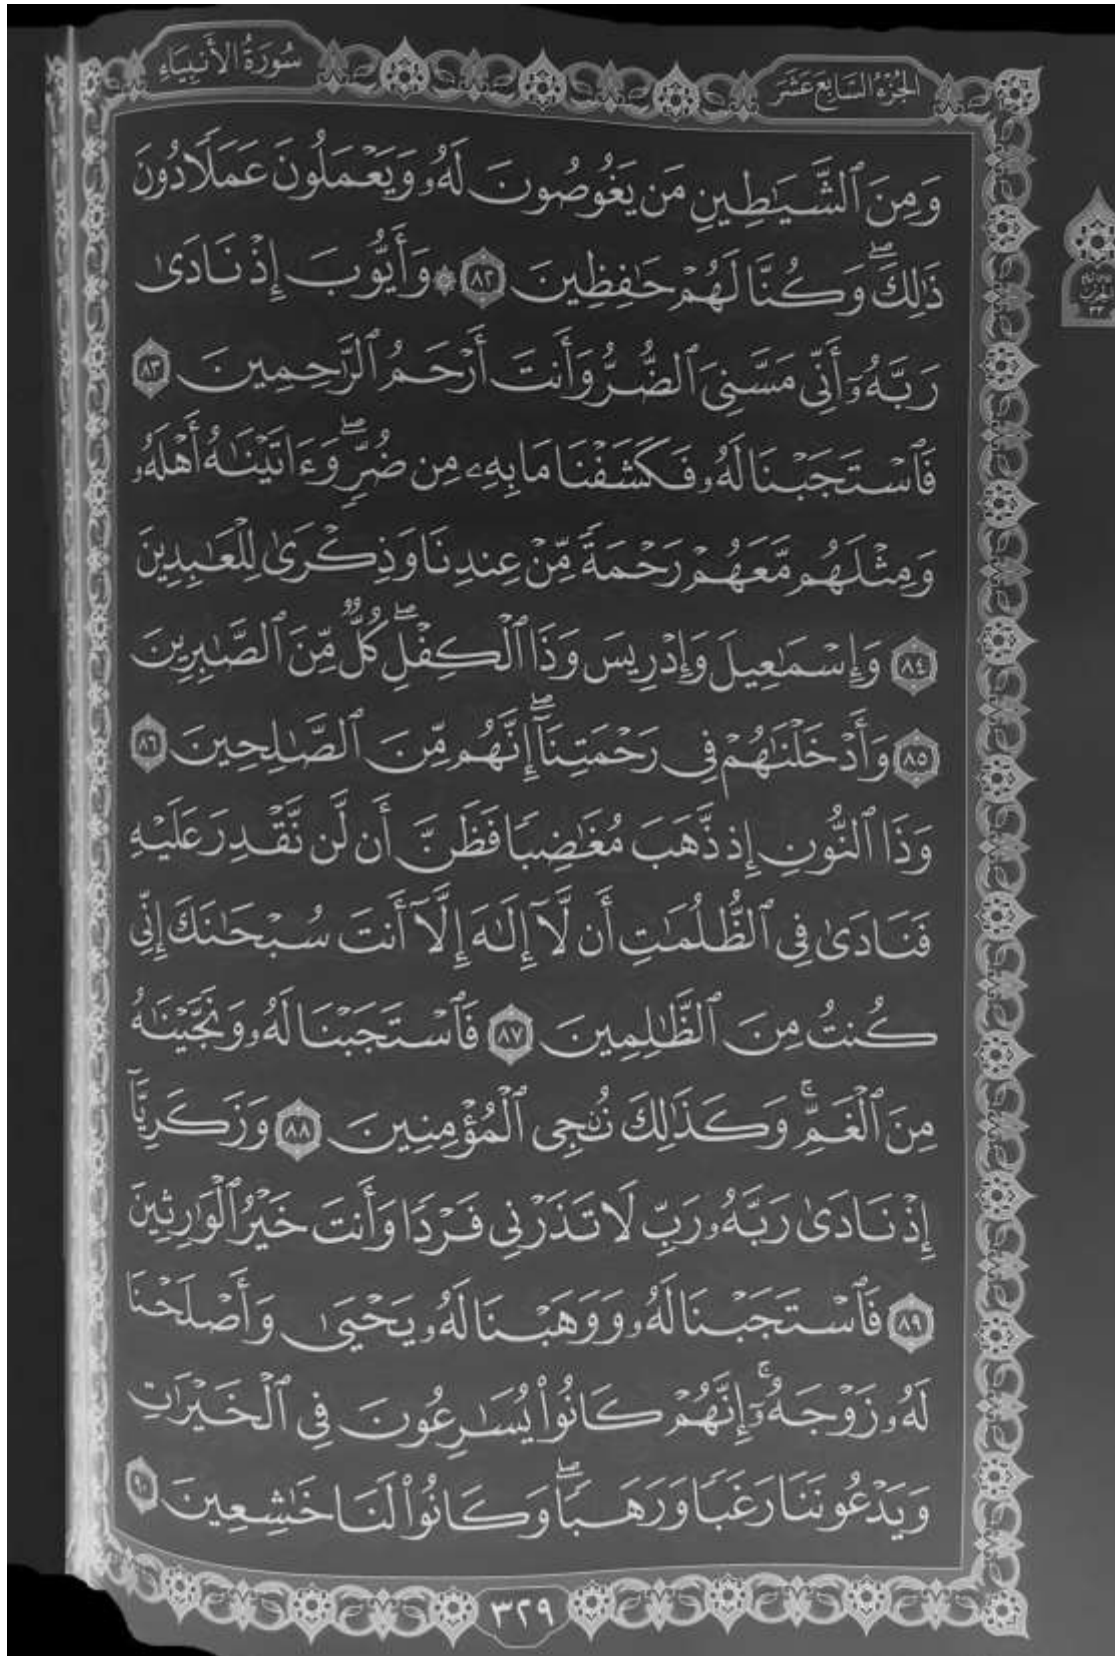 سُورَةُ الأَنبِيَاءِ
الجُزْءُ السَّابِعَ عَشَرَ
وَمِنَ ٱلشَّيَٰطِينِ مَن يَغُوصُونَ لَهُۥ وَيَعْمَلُونَ عَمَلًا دُونَ
ذَٰلِكَۖ وَكُنَّا لَهُمْ حَٰفِظِينَ ٨٢ ۞ وَأَيُّوبَ إِذْ نَادَىٰ
رَبَّهُۥٓ أَنِّى مَسَّنِىَ ٱلضُّرُّ وَأَنتَ أَرْحَمُ ٱلرَّٰحِمِينَ ٨٣
فَٱسْتَجَبْنَا لَهُۥ فَكَشَفْنَا مَا بِهِۦ مِن ضُرٍّۖ وَءَاتَيْنَٰهُ أَهْلَهُۥ
وَمِثْلَهُم مَّعَهُمْ رَحْمَةً مِّنْ عِندِنَا وَذِكْرَىٰ لِلْعَٰبِدِينَ
٨٤ وَإِسْمَٰعِيلَ وَإِدْرِيسَ وَذَا ٱلْكِفْلِۖ كُلٌّ مِّنَ ٱلصَّٰبِرِينَ
٨٥ وَأَدْخَلْنَٰهُمْ فِى رَحْمَتِنَآۖ إِنَّهُم مِّنَ ٱلصَّٰلِحِينَ ٨٦
وَذَا ٱلنُّونِ إِذ ذَّهَبَ مُغَٰضِبًا فَظَنَّ أَن لَّن نَّقْدِرَ عَلَيْهِ
فَنَادَىٰ فِى ٱلظُّلُمَٰتِ أَن لَّآ إِلَٰهَ إِلَّآ أَنتَ سُبْحَٰنَكَ إِنِّى
كُنتُ مِنَ ٱلظَّٰلِمِينَ ٨٧ فَٱسْتَجَبْنَا لَهُۥ وَنَجَّيْنَٰهُ
مِنَ ٱلْغَمِّۚ وَكَذَٰلِكَ نُۨجِى ٱلْمُؤْمِنِينَ ٨٨ وَزَكَرِيَّآ
إِذْ نَادَىٰ رَبَّهُۥ رَبِّ لَا تَذَرْنِى فَرْدًا وَأَنتَ خَيْرُ ٱلْوَٰرِثِينَ
٨٩ فَٱسْتَجَبْنَا لَهُۥ وَوَهَبْنَا لَهُۥ يَحْيَىٰ وَأَصْلَحْنَا
لَهُۥ زَوْجَهُۥٓۚ إِنَّهُمْ كَانُوا۟ يُسَٰرِعُونَ فِى ٱلْخَيْرَٰتِ
وَيَدْعُونَنَا رَغَبًا وَرَهَبًاۖ وَكَانُوا۟ لَنَا خَٰشِعِينَ ٩٠
٣٢٩